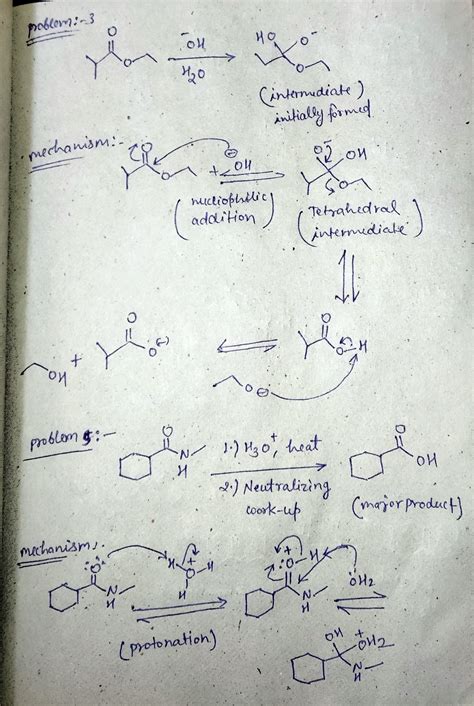 problem:-3
O
O
-OH
H2O
HO O-
O
(intermediate)
initially formed
mechanism:-
O
O
+ ⊖OH
(nucliophilic
addition)
O- OH
O
(Tetrahedral
intermediate)
OH + O
O⊖
O
O-H
O⊖
problem 5:-
O
N
H
1.) H3O+, heat
2.) Neutralizing
work-up
O
OH
(major product)
mechanism:
O
N
H
H O+ H
H
(protonation)
+
O-H
N
H
ÖH2
OH +
OH2
N
H